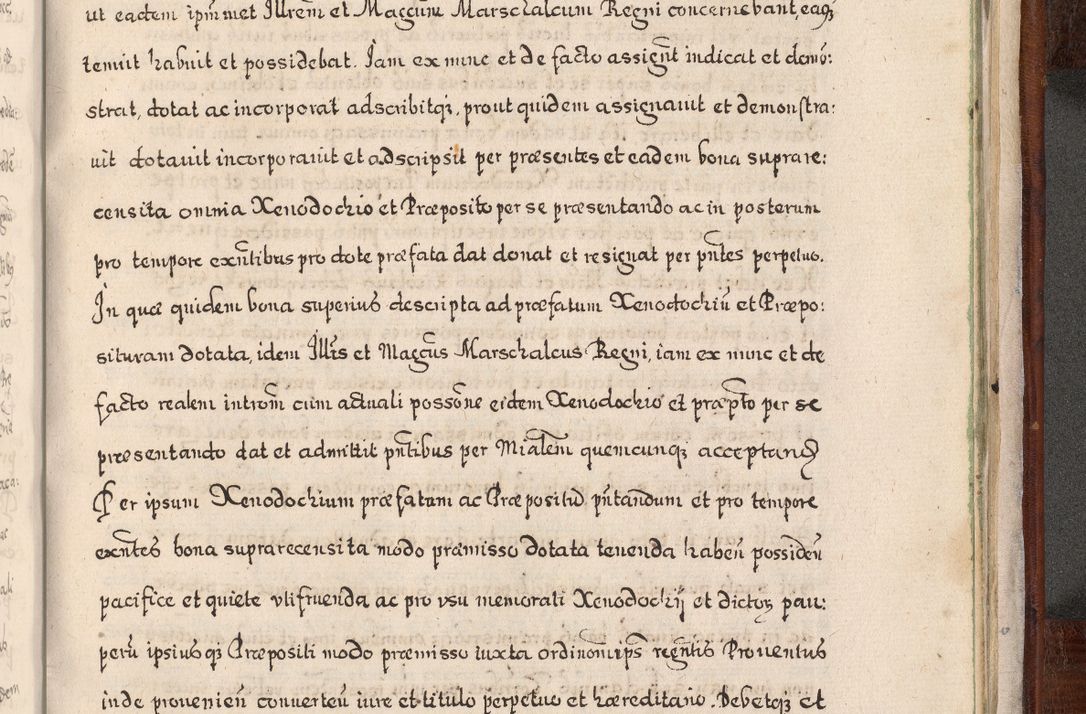 ut eadem ipm̄met Illrem̄ et Magcūm Marschalcum Regni concernebant, eaqȝ
tenuit habuit et possidebat. Iam ex nunc et de facto assigñt indicat et demō:
strat, dotat ac incorporat adscribitqȝ, prout quidem assignauit et demonstra:
uit dotauit incorporauit et adscripsit per præsentes et eadem bona suprare:
censita omnia Xenodochio et Præposito per se præsentando ac in posterum
pro tempore exñtibus pro dote præfata dat donat et resignat per pñtes perpetuo.
In quæ quidem bona superius descripta ad præfatum Xenodochiū et Præpo:
situram dotata, idem Illris et Magcūs Marschalcus Regni, iam ex nunc et de
facto realem introm̄ cum actuali possōne eidem Xenodochio et præpto per se
præsentando dat et admittit pñtibus per Mialem̄ quemcunqȝ acceptand
Per ipsum Xenodochium præfatum ac Præpositū pñtandum et pro tempore
exñtes bona suprarecensita modo præmisso dotata tenenda habeñ possideñ
pacifice et quiete vtifruenda ac pro vsu memorati Xenodochij et dictoꝝ pau:
perū ipsiusqȝ Præpositi modo præmisso iuxta ordinōm ips regñtis Prouentus
inde proueniēn conuerteñ iure et titulo perpetuo et hæreditario. Debetqȝ et